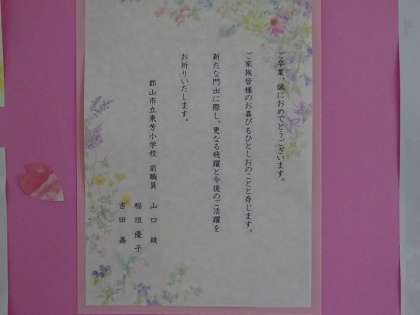 ご卒業、誠におめでとうございます。
ご家族皆様のお喜びもひとしおのことと存じます。
新たな門出に際し、更なる飛躍と今後のご活躍を
お祈りいたします。
郡山市立東芳小学校 前職員
山口 綾
稲垣 優子
吉田 嘉